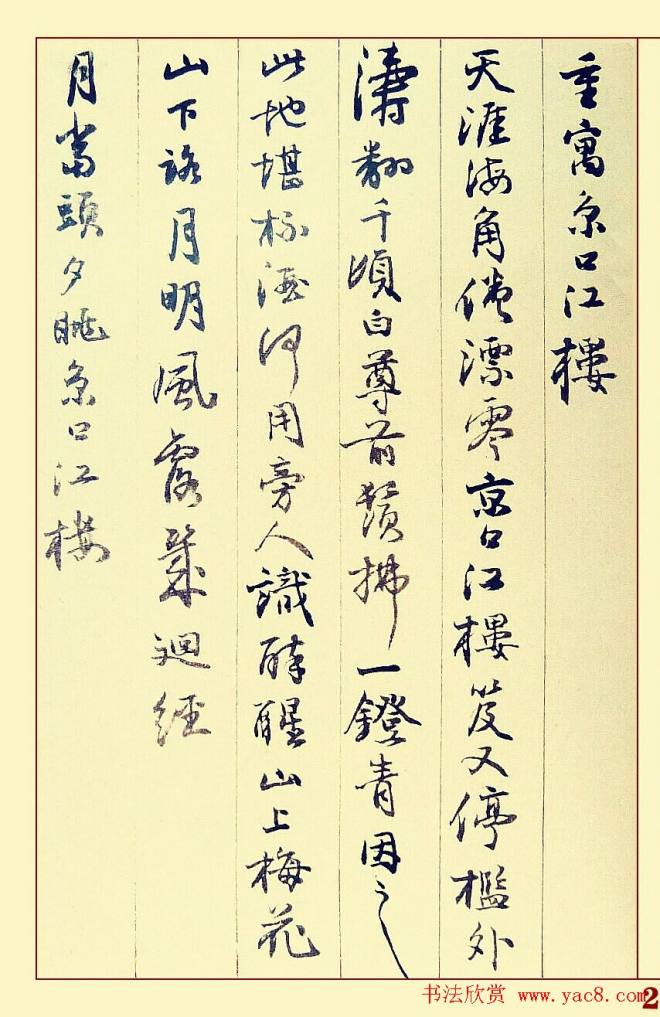 重寓京口江樓
天涯海角倦漂零京口江樓笈又停檻外
濤翻千頃白尊前鬢拂一鐙青因之
此地堪杯酒何用旁人識醉醒山上梅花
山下路月明風露幾迴經
月當頭夕眺京口江樓
书法欣赏 www.yac8.com 2